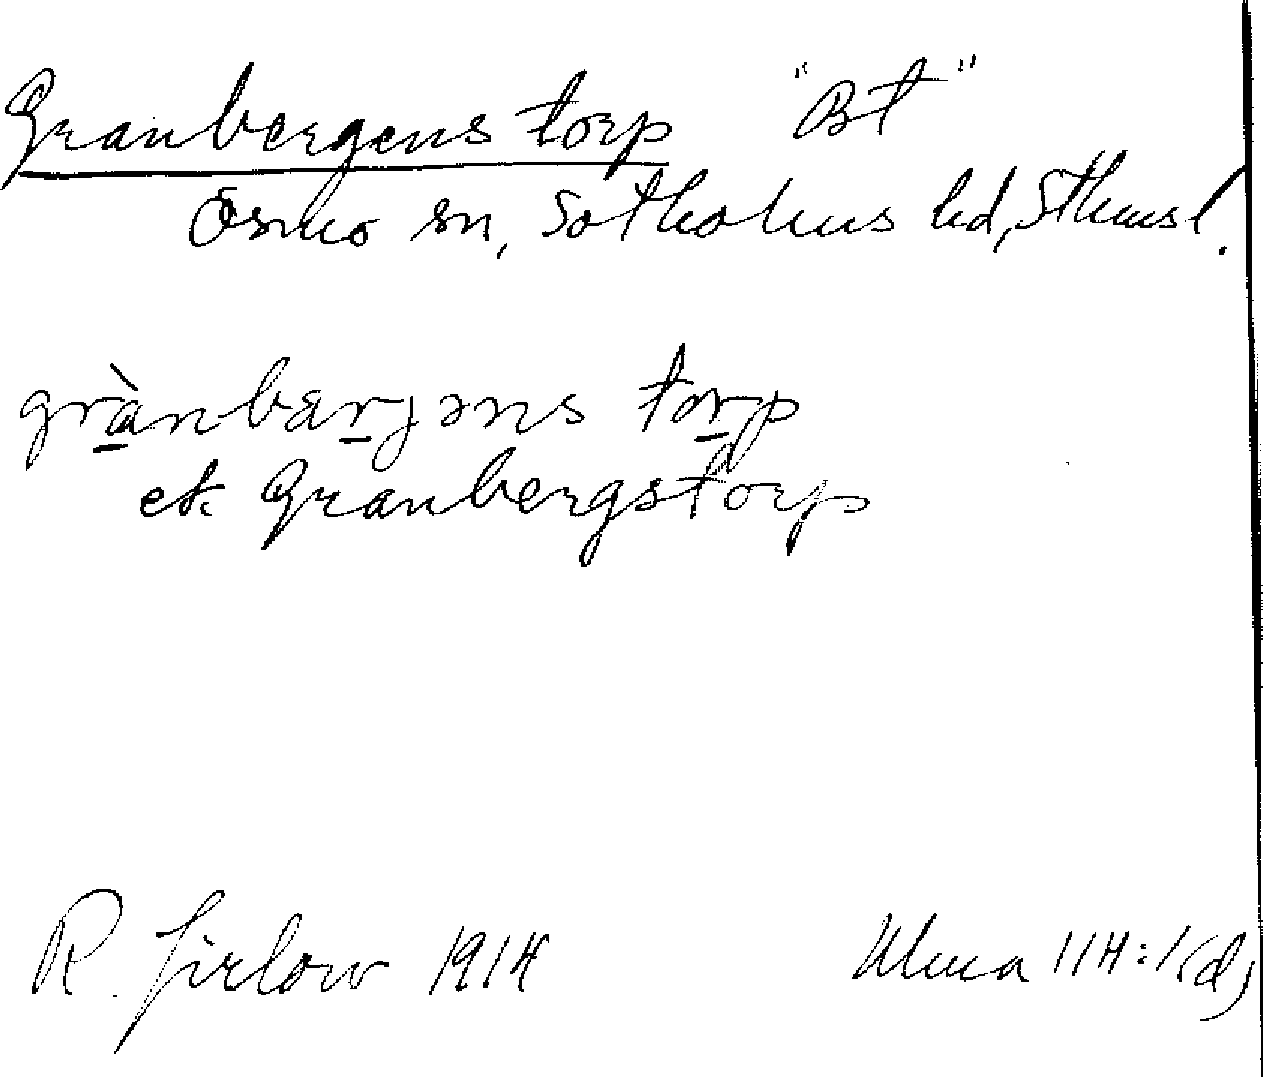 Granbergens torp "Bt"
Ösmo sn, Sotholms hd, Sthmsl.
grànbærjəns torp
ek Granbergstorp
R. Jirlow 1914 Ulma 114:1(d)